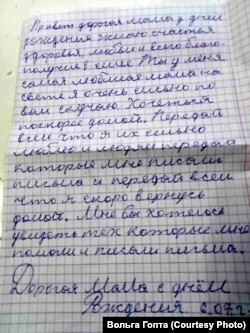 Привет дорогая мама с днём
рождения желаю счастья
здоровья, любви и всего благо-
получия в семье. Ты у меня
самая любимая мама на
свете я очень сильно по
вам скучаю. Хочеться
поскорее домой. Передай
всем что я их сильно
люблю и людям передай
которые мне писали
письма и передай всем
что я скоро вернусь
домой. Мне бы хотелось
увидеть тех которые мне
помогли и писали письма.
Дорогая Мама с днём
Рождения 6.07.
Вольга Гопта (Courtesy Photo)